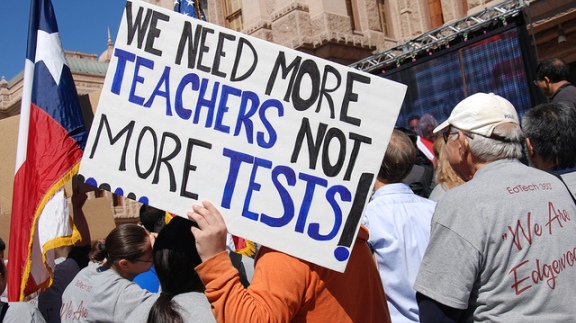 WE NEED MORE
TEACHERS NOT
MORE TESTS!
"We Are
Edgewood